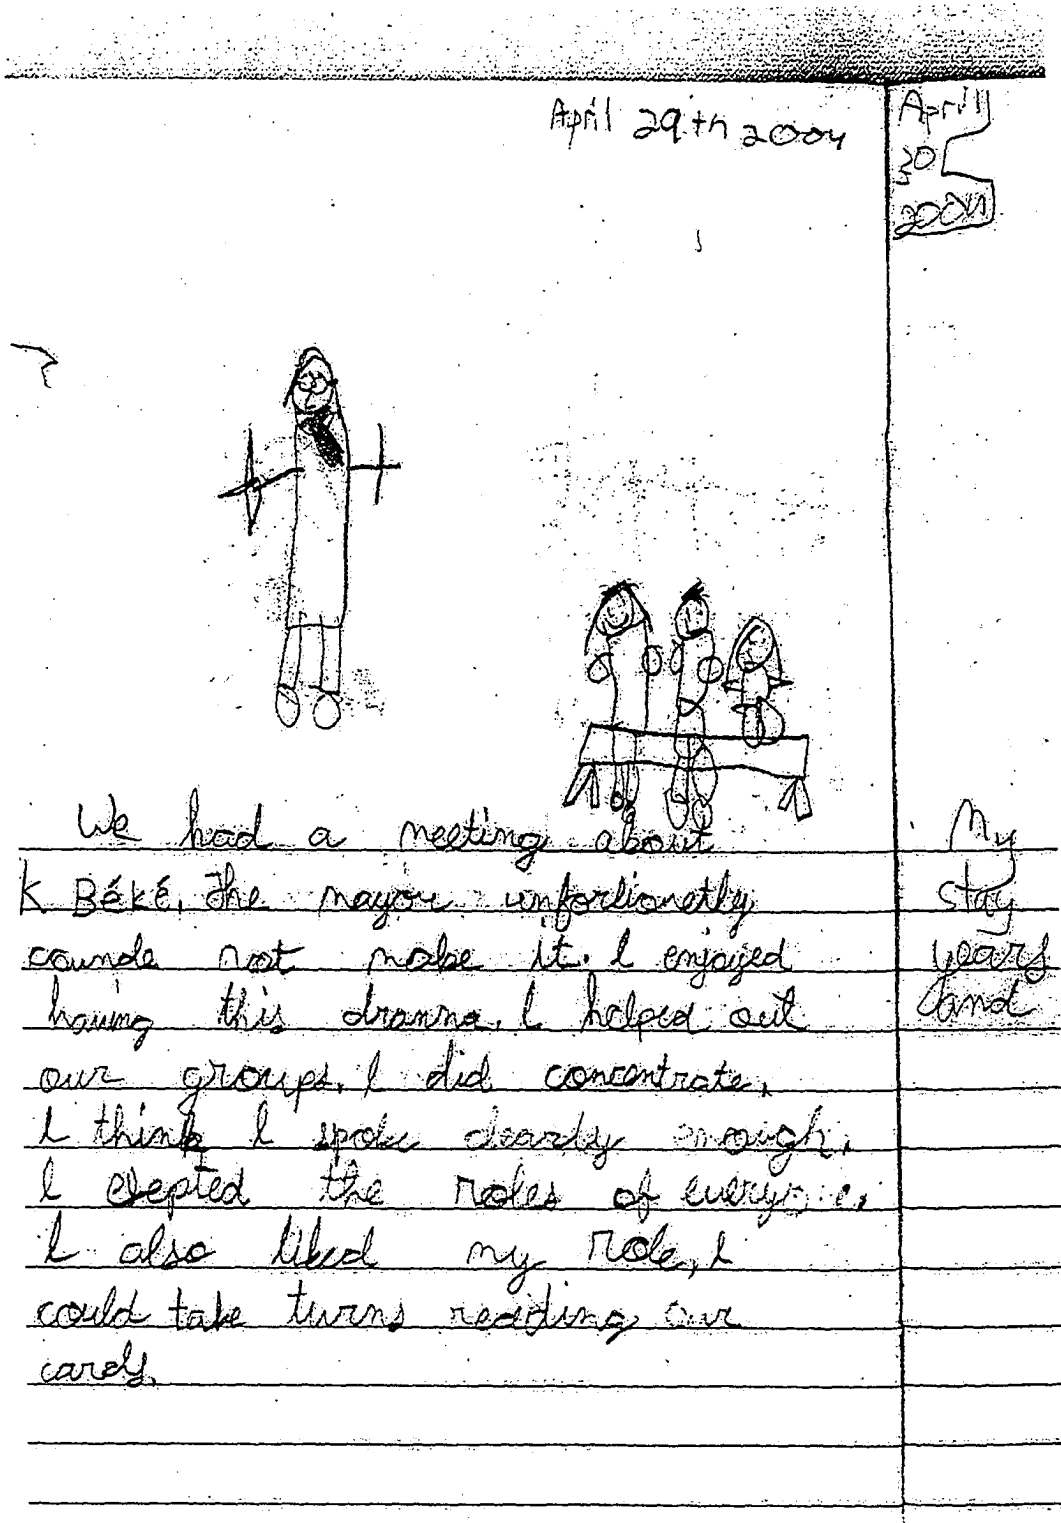 April 29th 2004
We had a meeting about
K Béké. The mayor unfortionetly
counde not make it. I enjoyed
having this dramma. I helped out
our groups. I did concentrate.
I think I spoke clearly enough.
I exepted the roles of
I also liked my role, I
could take turns reading our
cards.
April
30
2004
My
stay
years
and